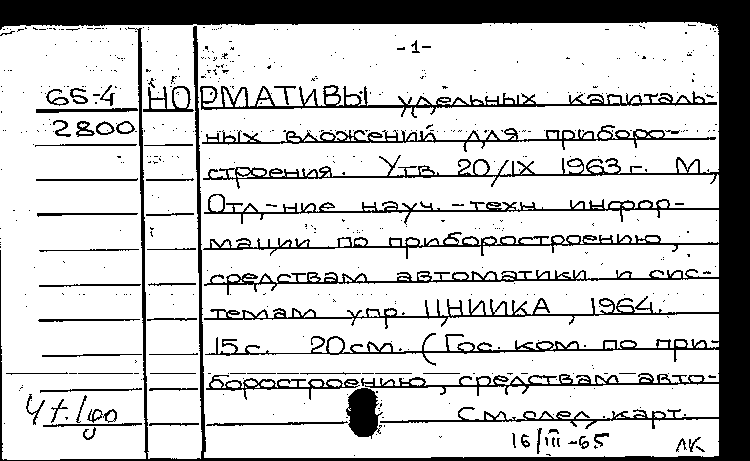 -1-
65-4 НОРМАТИВЫ удельных капиталь-
2800 ных вложений для приборо-
строения. Утв. 20/IX 1963 г. М.,
Отд-ние науч.-техн. инфор-
мации по приборостроению,
средствам автоматики и сис-
темам упр. ЦНИИКА, 1964.
15 с. 20 см. (Гос. ком. по при-
боростроению, средствам авто-
См. след. карт.
16/III-65 ЛК